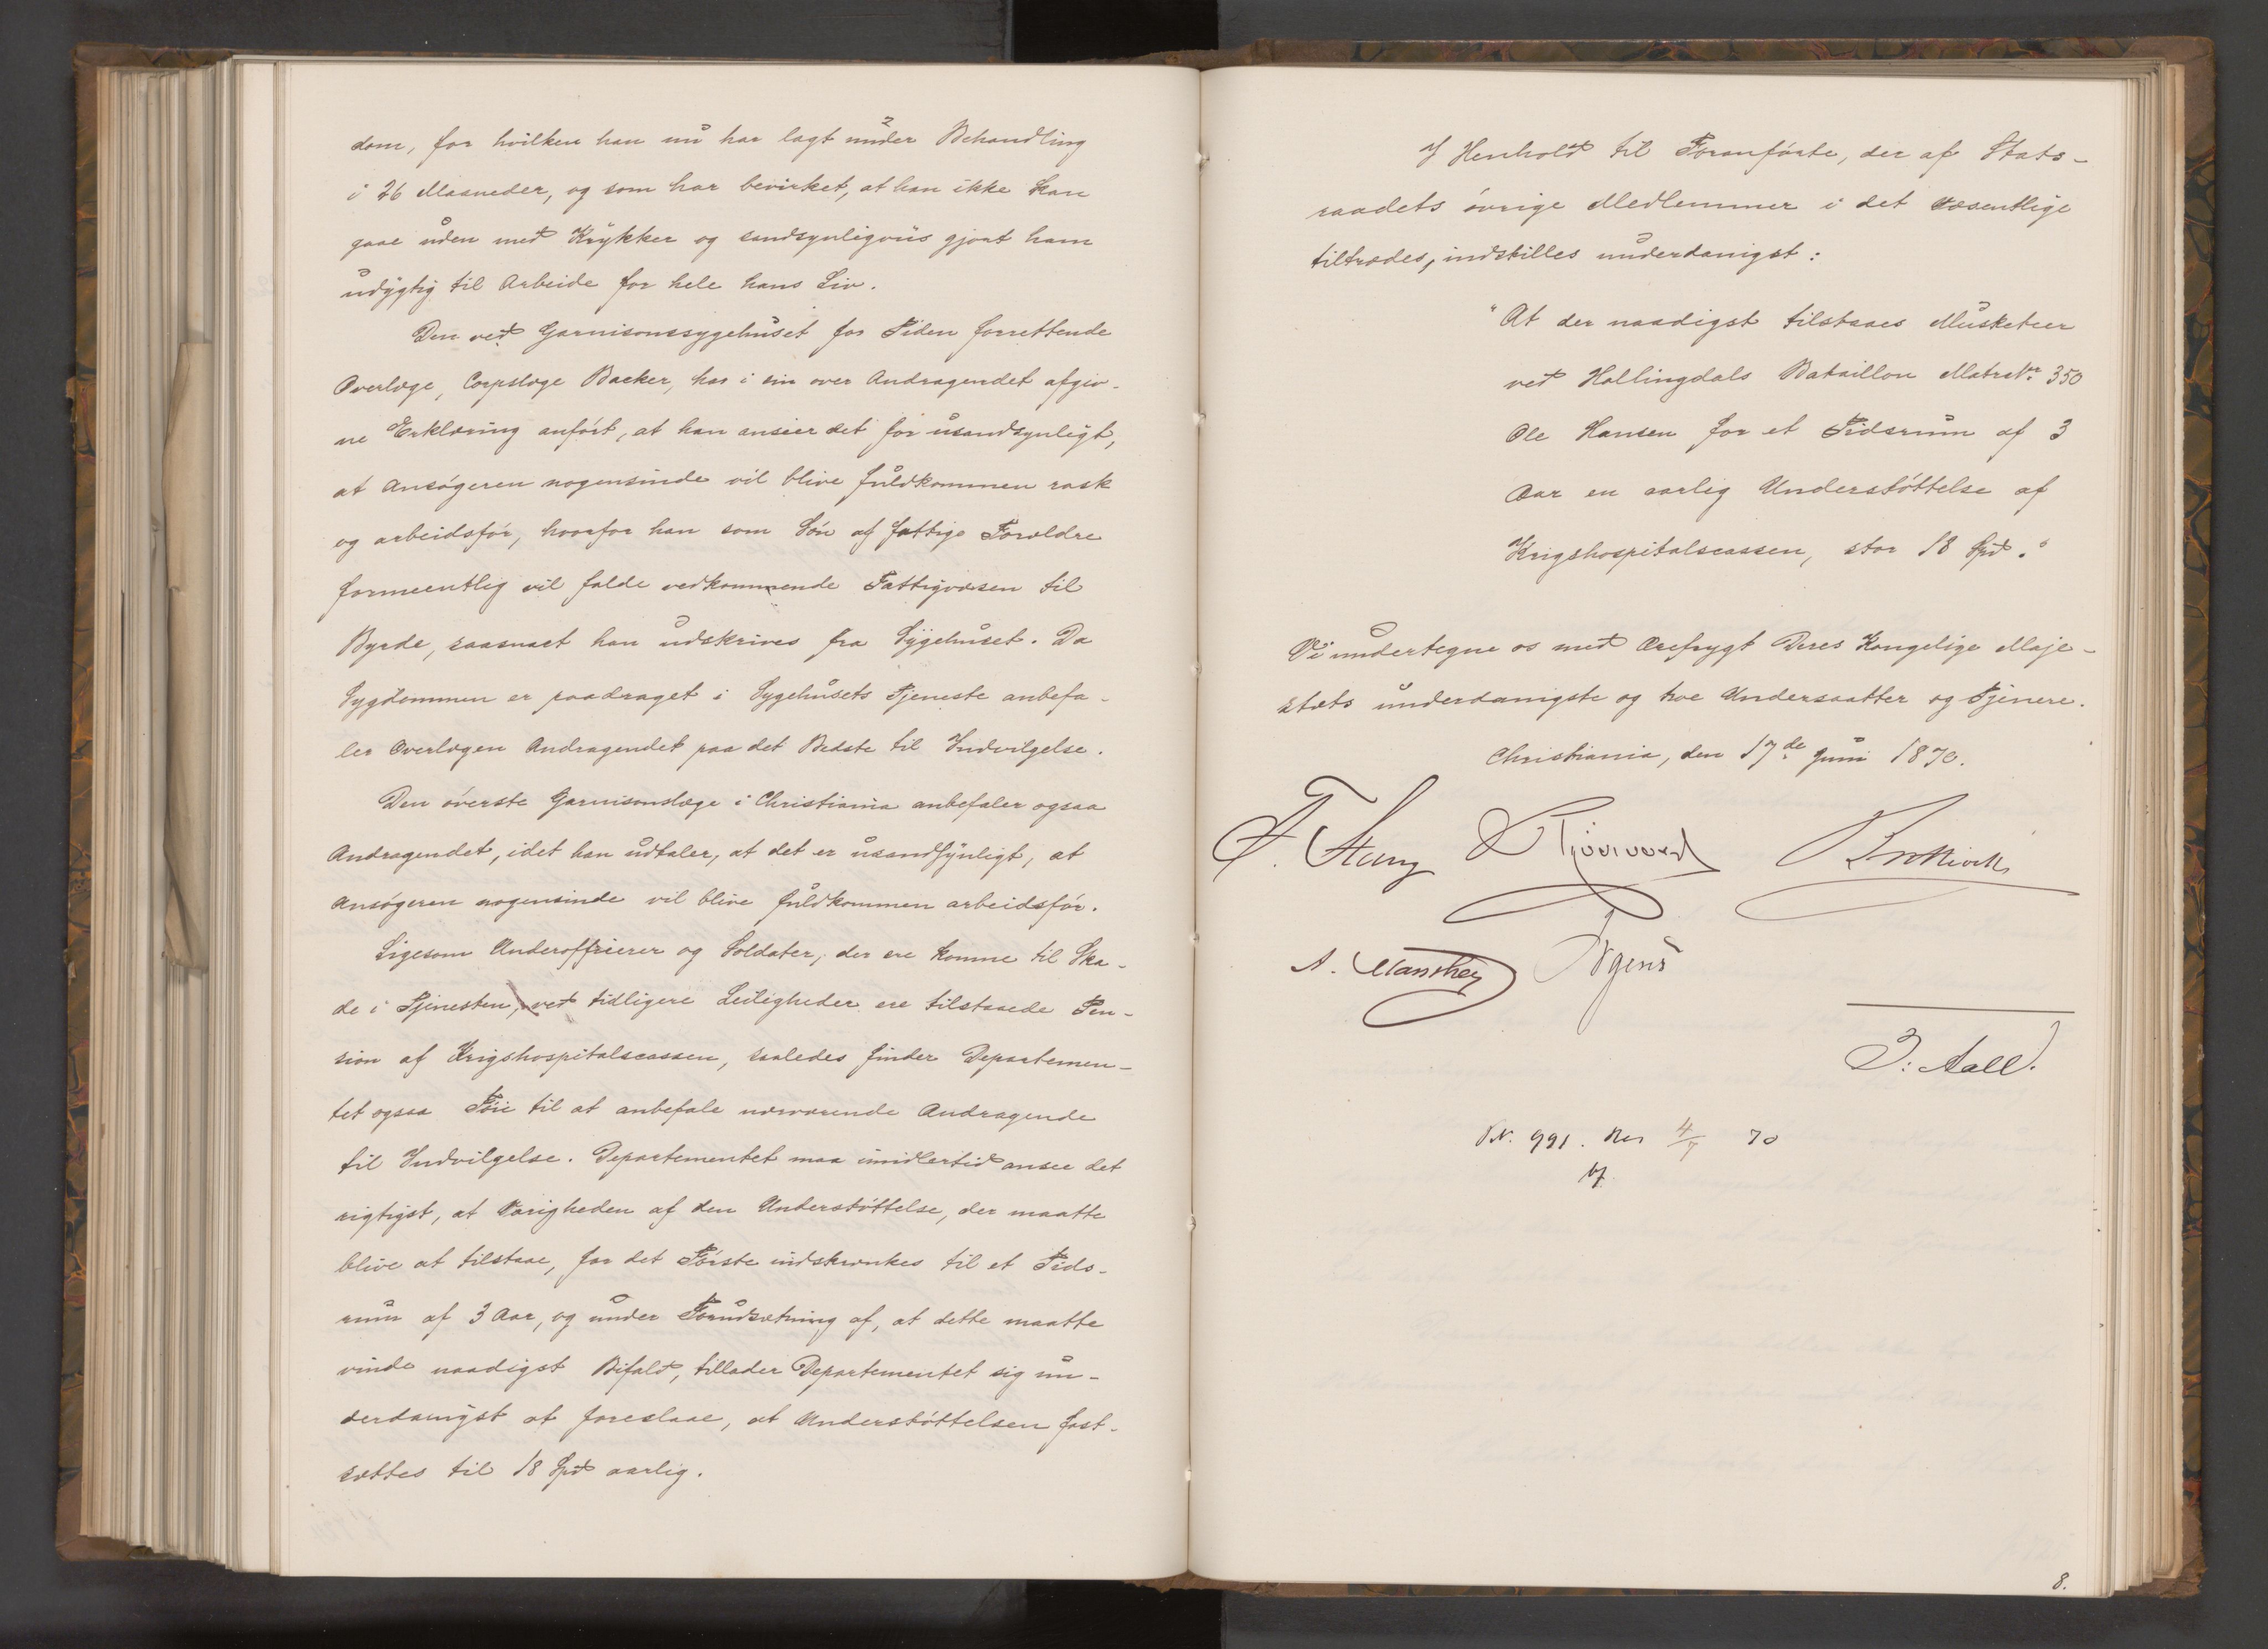 dom, for hvilken han nu har lagt under Behandling
i 26 Maaneder, og som har bevirket, at han ikke kan
gaae uden med Krykker og sandsynligviis gjort ham
udygtig til Arbeide for hele hans Liv.
Den ved Garnisonssygehuset for Tiden forrettende
Overlæge, Corpslæge Backer, har i sin over Andragendet afgiv-
ne Erklæring anført, at han anseer det for usandsynligt,
at Ansøgeren nogensinde vil blive fuldkommen rask
og arbeidsfør, hvorfor han som Søn af fattige Forældre
formeentlig vil falde vedkommende Fattigvæsen til
Byrde, saasnart han udskrives fra Sygehuset. Da
Sygdommen er paadraget i Sygehusets Tjeneste anbefa-
ler Overlægen Andragendet paa det Bedste til Indvilgelse.
Den øverste Garnisonslæge i Christiania anbefaler ogsaa
Andragendet, idet han udtaler, at det er usandsynligt, at
Ansøgeren nogensinde vil blive fuldkommen arbeidsfør.
Ligesom Underofficierer og Soldater, der ere komne til Ska-
de i Tjenesten, ved tidligere Leiligheder ere tilstaaede Pen-
sion af Krigshospitalscassen, saaledes finder Departemen-
tet ogsaa Føie til at anbefale nærværende Andragende
til Indvilgelse. Departementet maa imidlertid ansee det
rigtigst, at Varigheden af den Understøttelse, der maatte
blive at tilstaae, for det Første indskrænkes til et Tids-
rum af 3 Aar, og under Forudsætning af, at dette maatte
vinde naadigst Bifald, tillader Departementet sig un-
derdanigst at foreslaae, at Understøttelsen fast-
sættes til 18 Spd aarlig.
I Henhold til Foranførte, der af Stats-
raadets øvrige Medlemmer i det Væsentlige
tiltrædes, indstilles underdanigst:
"At der naadigst tilstaaes Musketeer
ved Hallingdals Bataillon Matr. Nr. 350
Ole Hansen for et Tidsrum af 3
Aar en aarlig Understøttelse af
Krigshospitalscassen, stor 18 Spd."
Vi undertegne os med Ærefrygt Deres Kongelige Maje-
stæts underdanigste og troe Undersaatter og Tjenere.
Christiania, den 17de Juni 1870.
F. Stang
A. Manthey Irgens
J: Aall.
N. 991. Res 4/7 70
8.